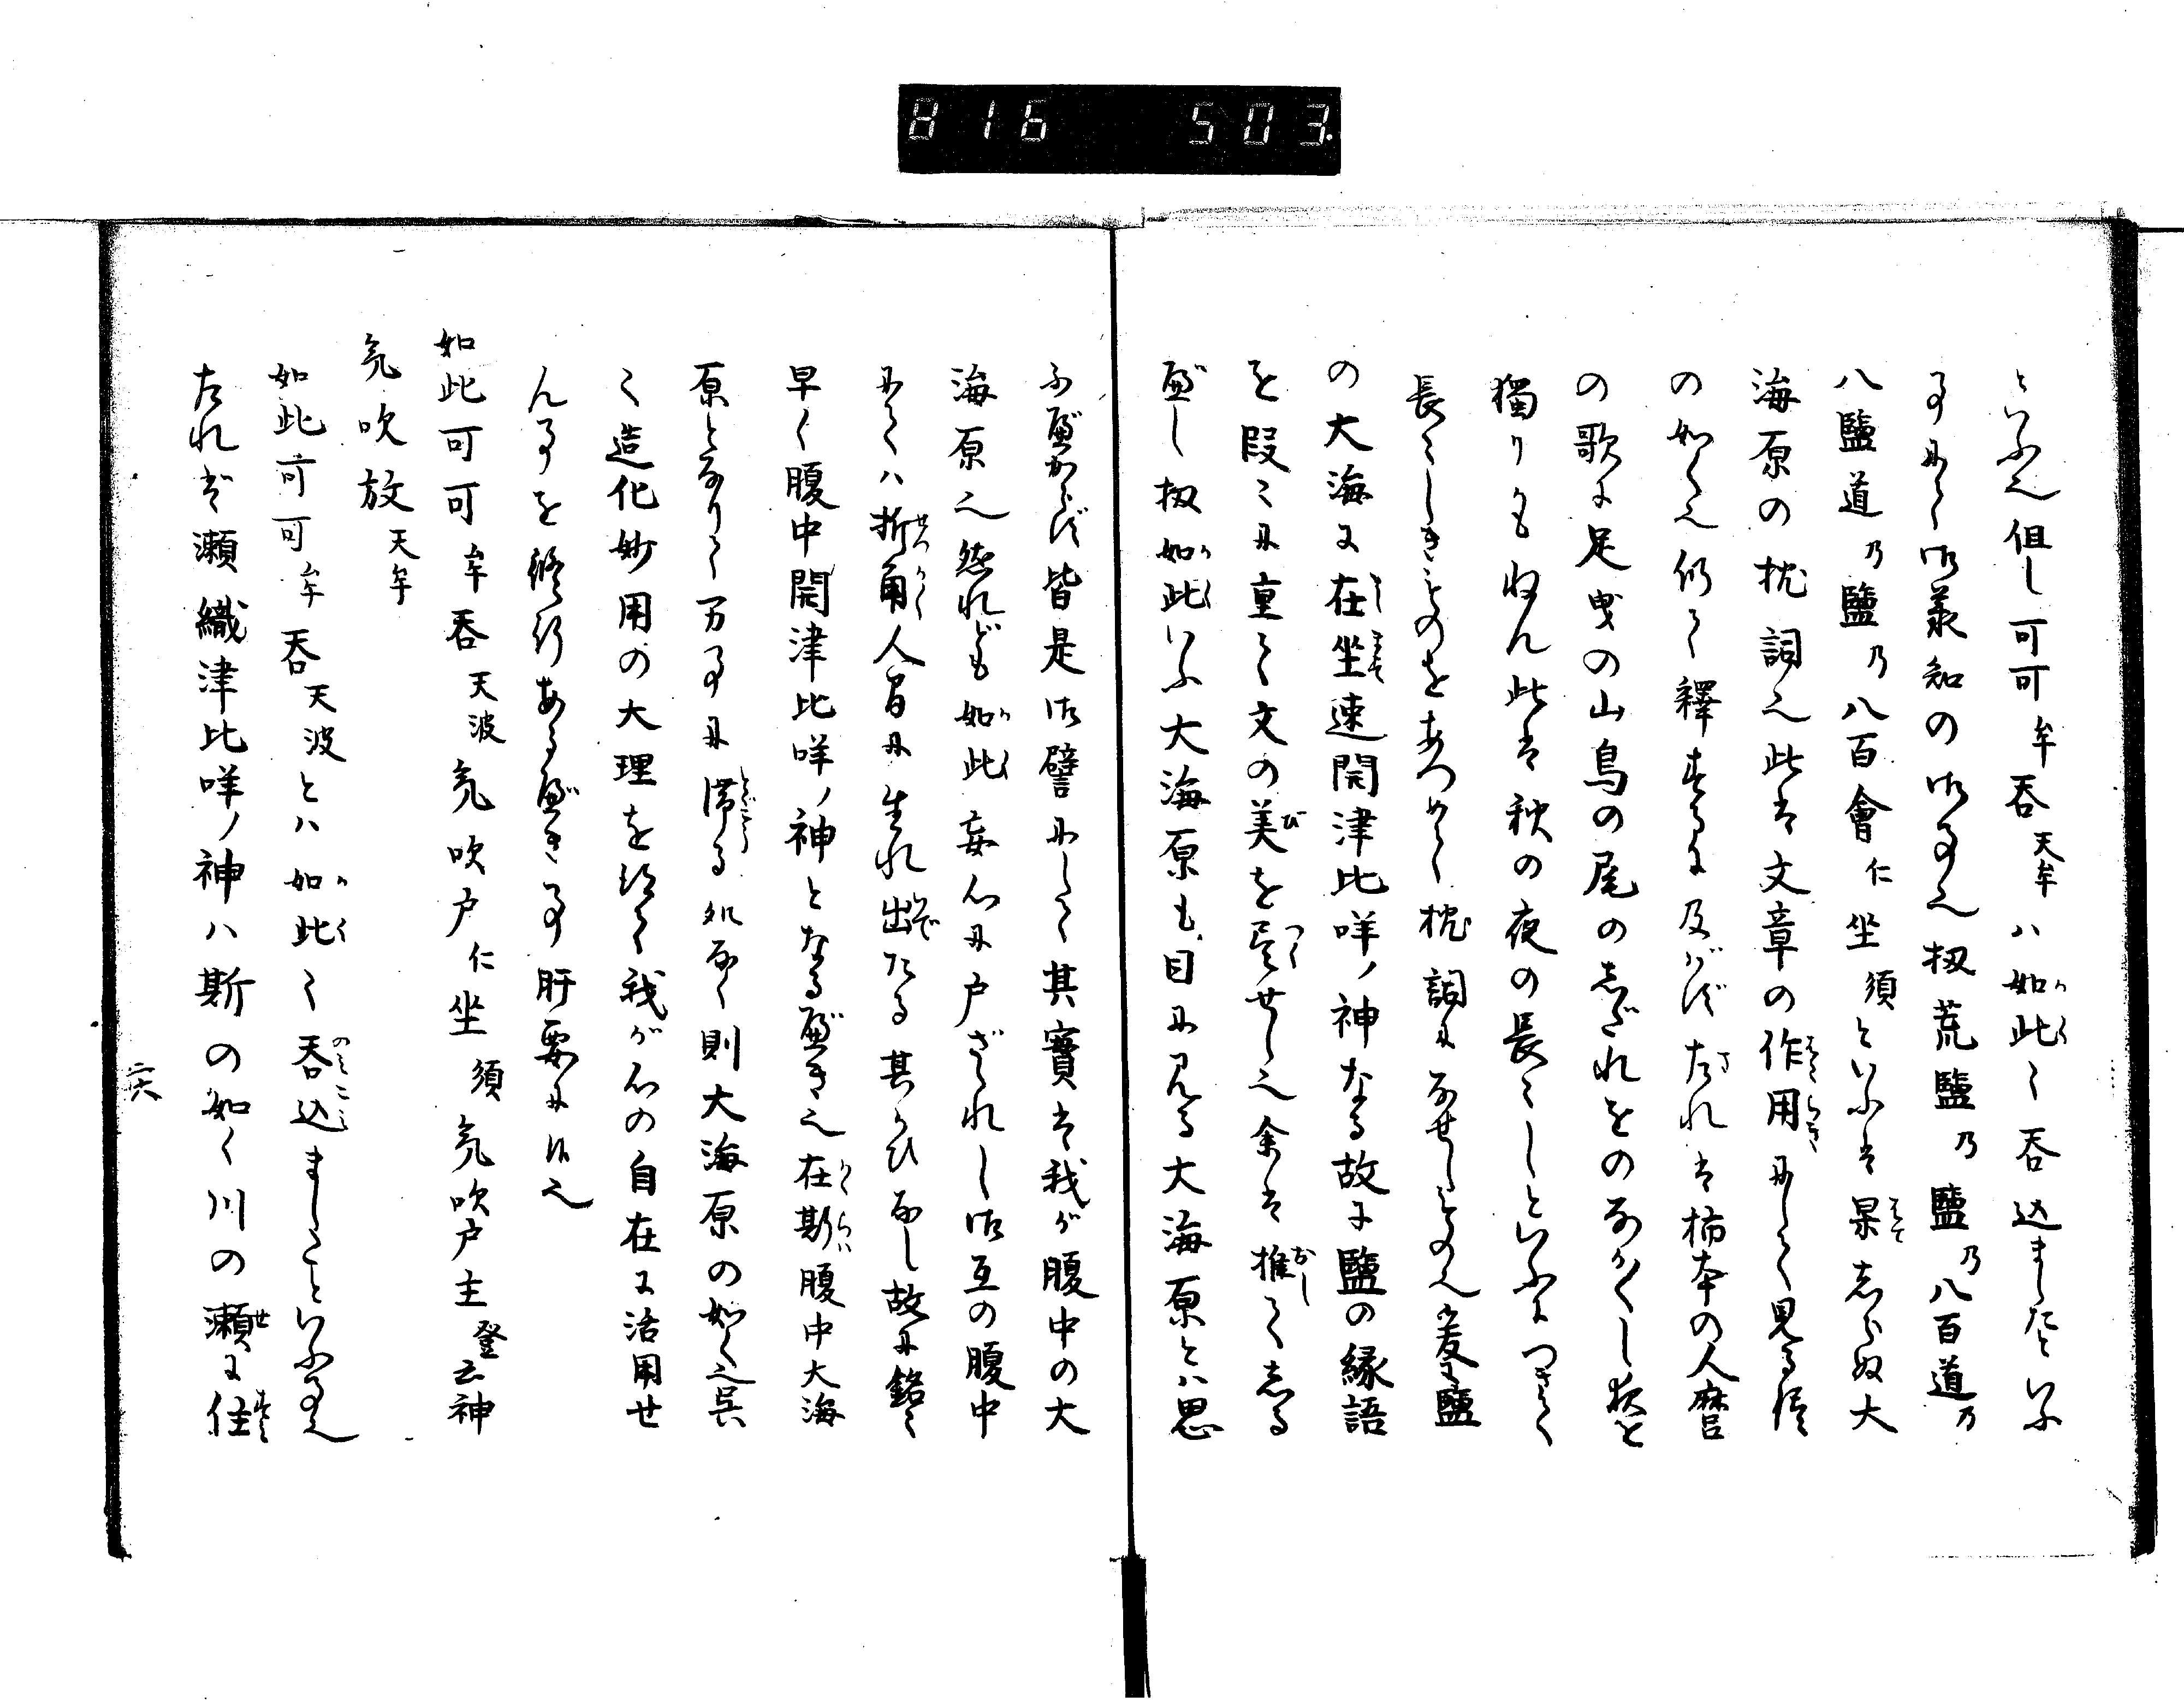 816 503.
といふ也但し可可牟呑天牟ハ如此く呑込ましたといふ
事にて御承知の御事也扨荒鹽乃鹽乃八百道乃
八鹽道乃鹽乃八百會仁坐須といふは果志らぬ大
海原の枕詞也此は文章の作用にして見る侭
の如く也仍て釋するに及バずたれは柿本の人麿
の歌に足曳の山鳥の尾の志だれをのながくし夜を
獨りかもねん此は秋の夜の長くしといふにつきて
長くしきものをあつめて枕詞になせしもの也爰も鹽
の大海に在坐速開津比咩ノ神なる故に鹽の縁語
を段々に重て文の美を尽せし也余は推て志る
べし扨如此いふ大海原も目に見る大海原とハ思
ふべからず皆是御譬にして其實は我が腹中の大
海原也然れども如此妄心に戸ざゝれし御互の腹中
にてハ折角人間に生れ出たる其かひなし故に銘々
早く腹中開津比咩ノ神となるべき也在斯腹中大海
原となりて万事に滞る処なく則大海原の如く也呉
く造化妙用の大理を得て我が心の自在に活用せ
ん事を修行あるべき事肝要に候也
如此可可牟呑天波気吹戸仁坐須気吹戸主登云神
気吹放天牟
如此可可牟呑天波とハ如此く呑込ましたといふ事也
たれば瀬織津比咩ノ神ハ斯の如く川の瀬に住
六